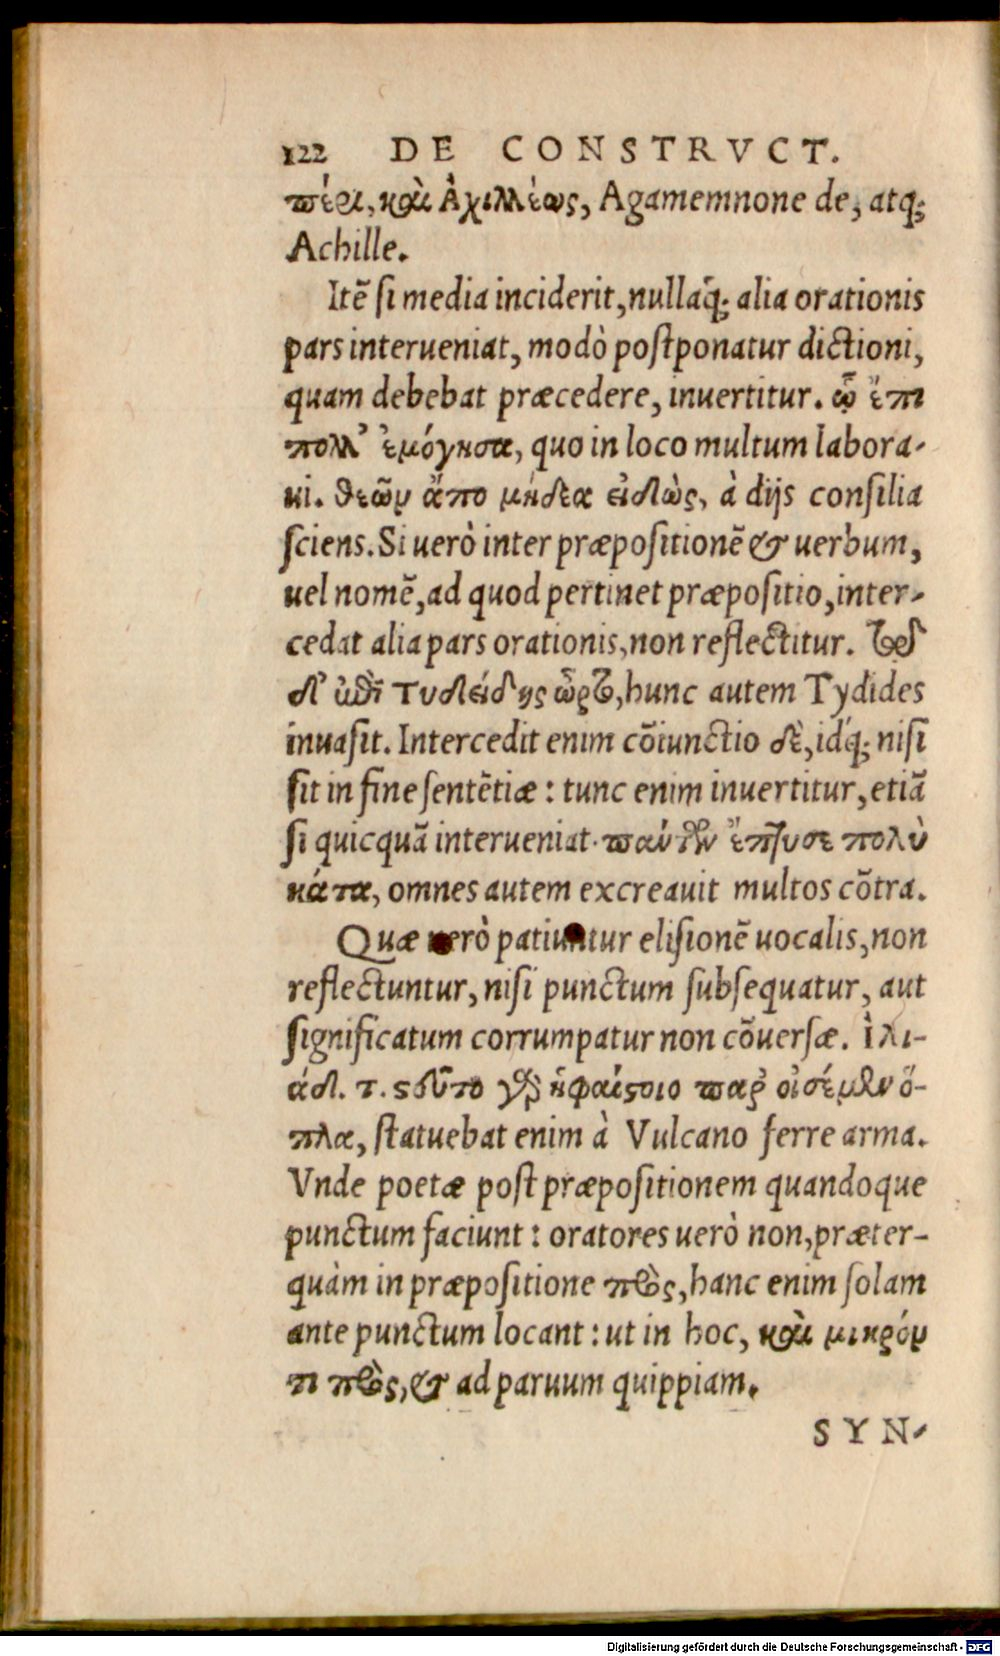 122 DE CONSTRVCT.
πέρι, καὶ Ἀχιλλέως, Agamemnone de, atq;
Achille.
Itē si media inciderit, nullaq́; alia orationis
pars interueniat, modò postponatur dictioni,
quam debebat præcedere, inuertitur. ᾧ ἔπι
πολλ' ἐμόγησα, quo in loco multum labora-
ui. θεῶν ἄπο μήδεα εἰδὼς, à dijs consilia
sciens. Si uerò inter præpositionē & uerbum,
uel nomē, ad quod pertinet præpositio, inter-
cedat alia pars orationis, non reflectitur.
δ' Τυδείδης ὦρτο, hunc autem Tydides
inuasit. Intercedit enim cōiunctio δὲ, idq́; nisi
sit in fine sentētiæ: tunc enim inuertitur, etiā
si quicquā interueniat. ἔπτυσε πολὺ
κάτα, omnes autem excreauit multos cōtra.
Quæ uerò patiuntur elisionē uocalis, non
reflectuntur, nisi punctum subsequatur, aut
significatum corrumpatur non cōuersæ. Ἰλι-
άδ. τ. ϛεῦτο γὰρ ἡφαίϛοιο παρ' οἰσέμεν ὅ-
πλα, statuebat enim à Vulcano ferre arma.
Vnde poetæ post præpositionem quandoque
punctum faciunt: oratores uerò non, præter-
quàm in præpositione πρὸς, hanc enim solam
ante punctum locant: ut in hoc, καὶ μικρόν
τι πρὸς, & ad paruum quippiam.
SYN-
Digitalisierung gefördert durch die Deutsche Forschungsgemeinschaft - DFG